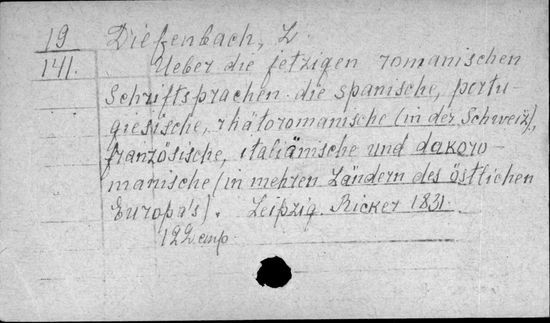 19 Diefenbach, L.
141. Ueber die jetzigen romanischen
Schriftsprachen. die spanische, portu-
giesische, rhätoromanische (in der Schweiz),
französische, italiänische und dakoro-
manische (in mehren Ländern des östlichen
Europa's). Leipzig Ricker 1831.
122 стр.